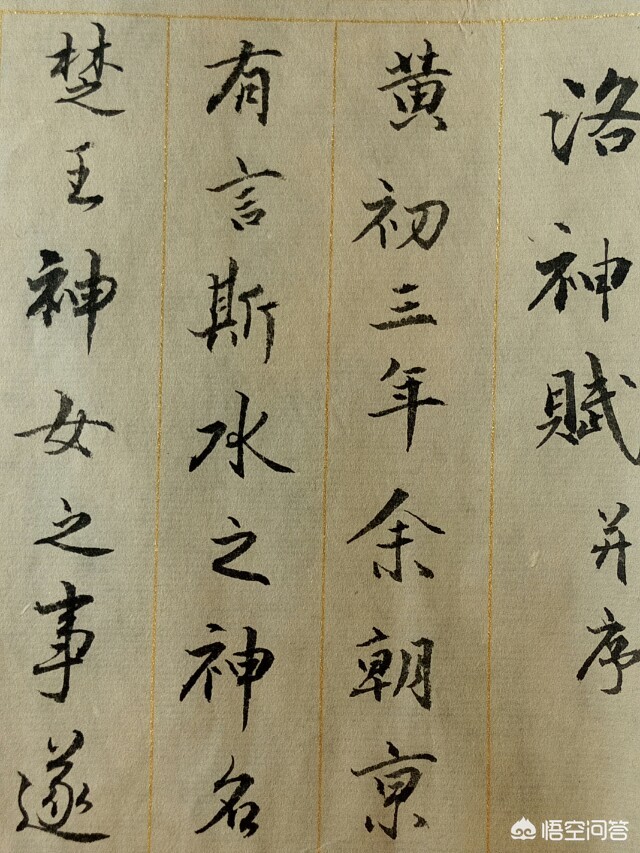 洛神賦并序
黃初三年余朝京
有言斯水之神名
楚王神女之事遂
悟空问答